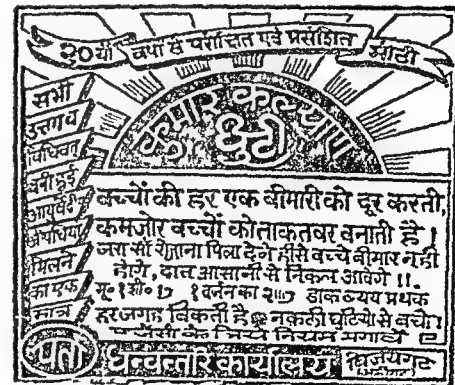 २० वर्षों से परीक्षित एवं प्रशंशित
कुमार कल्याण
घुटी
सभी
उत्तमव
विधिवत
बनी हुई
आयुर्वे
औषधियां
मिलने
का एक
मात्र
बच्चों की हर एक बीमारी को दूर करती,
कमजोर बच्चों को ताकतवर बनाती है।
जरा सी रोजाना पिला देने ही से बच्चे बीमार नहीं
होंगे, दात आसानी से निकल आवेंगे !!.
मू० १ शी० १७ १ दर्जन का २॥७ डाक व्यय प्रथक
हर जगह बिकती है नकली घुटियों से बचो।
एजेंसी के लिये नियम मगावें
पता धन्वन्तरि कार्यालय विजयगढ